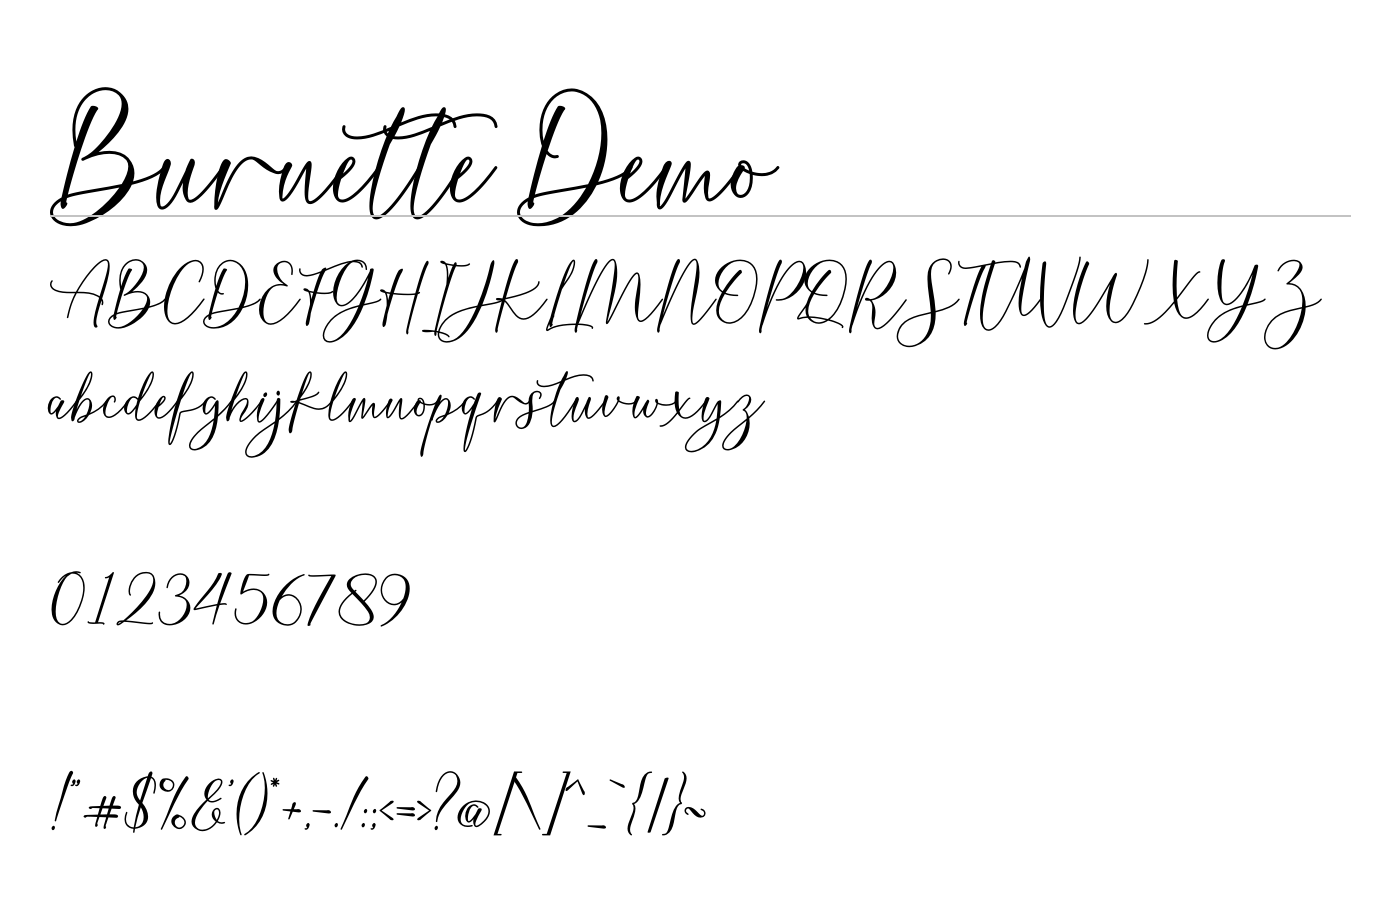 Burnette Demo
ABCDEFGHIJKLMNOPQRSTUVWXYZ
abcdefghijklmnopqrstuvwxyz
0123456789
!"#$%&'()*+,-./:;<=>?@[\]^_`{|}~